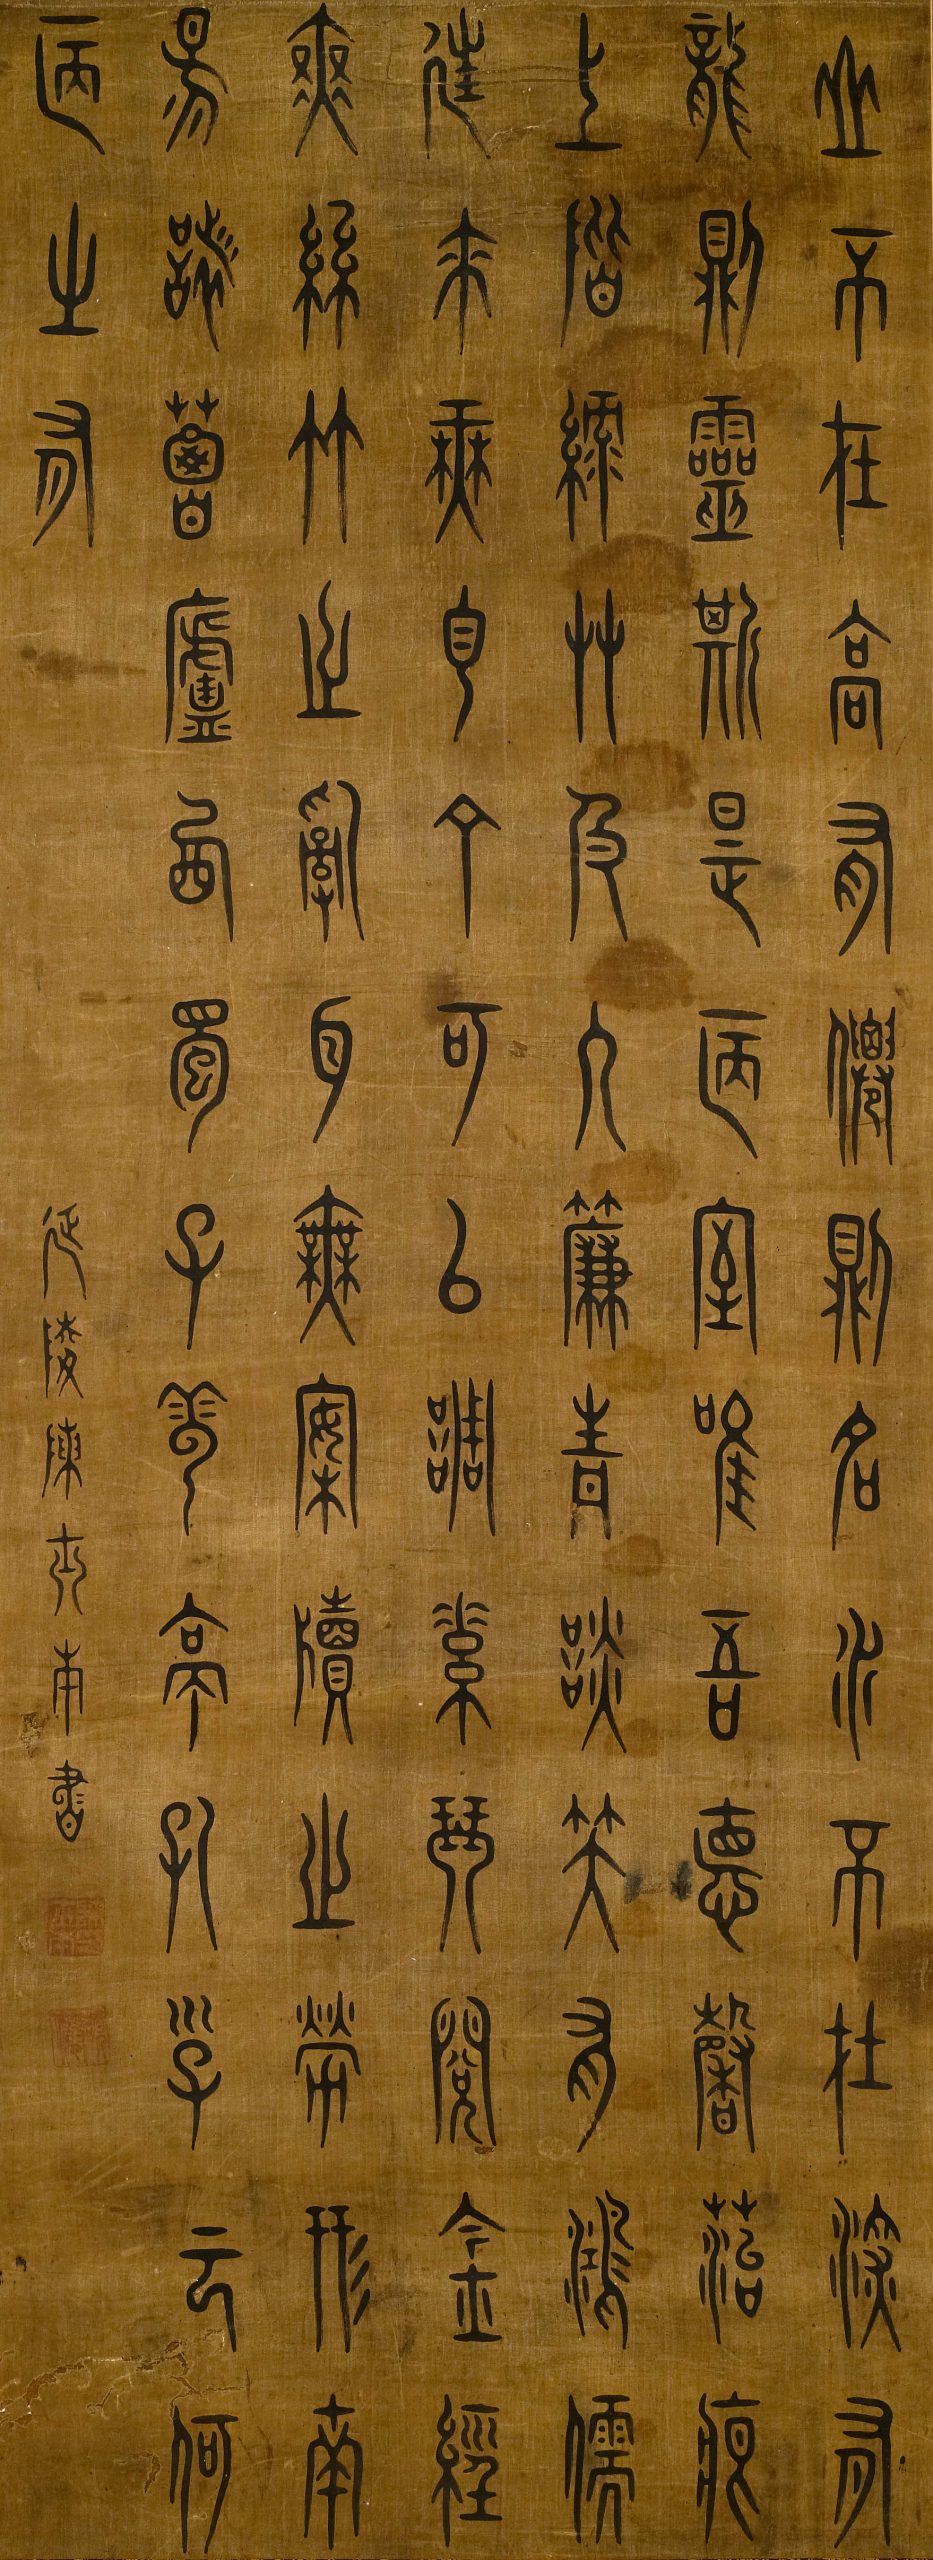 山不在高有僊則名水不在深有
龍則靈斯是陋室唯吾德馨苔痕
上階綠艸色入簾青談笑有鴻儒
往來無白丁可以調素琴閱金經
無絲竹之亂耳無案牘之勞形南
陽諸葛廬西蜀子雲亭孔子云何
陋之有
延陵陳南書